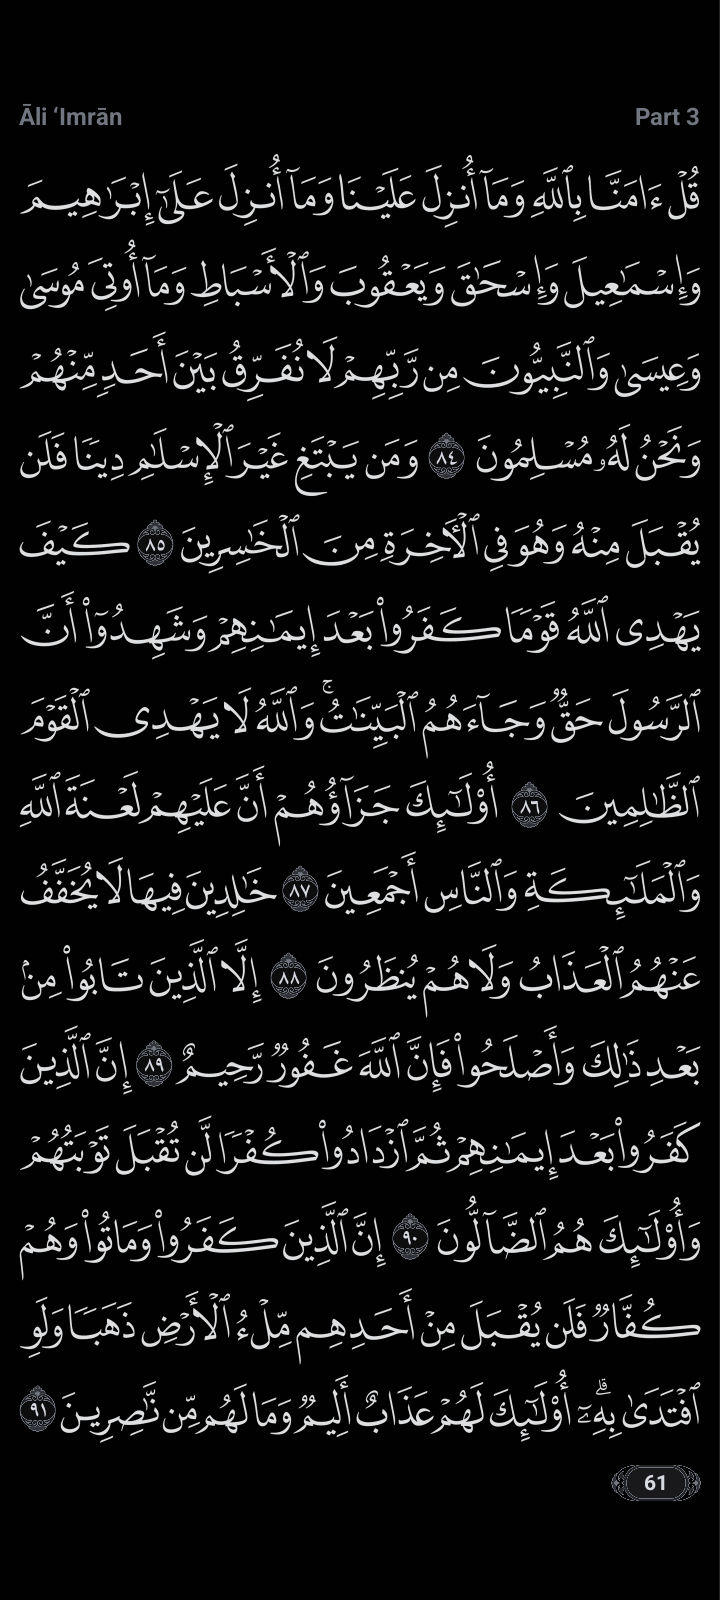 Āli ‘Imrān
Part 3
قُلْ ءَامَنَّا بِٱللَّهِ وَمَآ أُنزِلَ عَلَيْنَا وَمَآ أُنزِلَ عَلَىٰٓ إِبْرَٰهِيمَ
وَإِسْمَـٰعِيلَ وَإِسْحَـٰقَ وَيَعْقُوبَ وَٱلْأَسْبَاطِ وَمَآ أُوتِىَ مُوسَىٰ
وَعِيسَىٰ وَٱلنَّبِيُّونَ مِن رَّبِّهِمْ لَا نُفَرِّقُ بَيْنَ أَحَدٍ مِّنْهُمْ
وَنَحْنُ لَهُۥ مُسْلِمُونَ ٨٤ وَمَن يَبْتَغِ غَيْرَ ٱلْإِسْلَـٰمِ دِينًا فَلَن
يُقْبَلَ مِنْهُ وَهُوَ فِى ٱلْـَٔاخِرَةِ مِنَ ٱلْخَـٰسِرِينَ ٨٥ كَيْفَ
يَهْدِى ٱللَّهُ قَوْمًا كَفَرُوا۟ بَعْدَ إِيمَـٰنِهِمْ وَشَهِدُوٓا۟ أَنَّ
ٱلرَّسُولَ حَقٌّ وَجَآءَهُمُ ٱلْبَيِّنَـٰتُ ۚ وَٱللَّهُ لَا يَهْدِى ٱلْقَوْمَ
ٱلظَّـٰلِمِينَ ٨٦ أُو۟لَـٰٓئِكَ جَزَآؤُهُمْ أَنَّ عَلَيْهِمْ لَعْنَةَ ٱللَّهِ
وَٱلْمَلَـٰٓئِكَةِ وَٱلنَّاسِ أَجْمَعِينَ ٨٧ خَـٰلِدِينَ فِيهَا لَا يُخَفَّفُ
عَنْهُمُ ٱلْعَذَابُ وَلَا هُمْ يُنظَرُونَ ٨٨ إِلَّا ٱلَّذِينَ تَابُوا۟ مِنۢ
بَعْدِ ذَٰلِكَ وَأَصْلَحُوا۟ فَإِنَّ ٱللَّهَ غَفُورٌ رَّحِيمٌ ٨٩ إِنَّ ٱلَّذِينَ
كَفَرُوا۟ بَعْدَ إِيمَـٰنِهِمْ ثُمَّ ٱزْدَادُوا۟ كُفْرًا لَّن تُقْبَلَ تَوْبَتُهُمْ
وَأُو۟لَـٰٓئِكَ هُمُ ٱلضَّآلُّونَ ٩٠ إِنَّ ٱلَّذِينَ كَفَرُوا۟ وَمَاتُوا۟ وَهُمْ
كُفَّارٌ فَلَن يُقْبَلَ مِنْ أَحَدِهِم مِّلْءُ ٱلْأَرْضِ ذَهَبًا وَلَوِ
ٱفْتَدَىٰ بِهِۦٓ ۗ أُو۟لَـٰٓئِكَ لَهُمْ عَذَابٌ أَلِيمٌ وَمَا لَهُم مِّن نَّـٰصِرِينَ ٩١
61